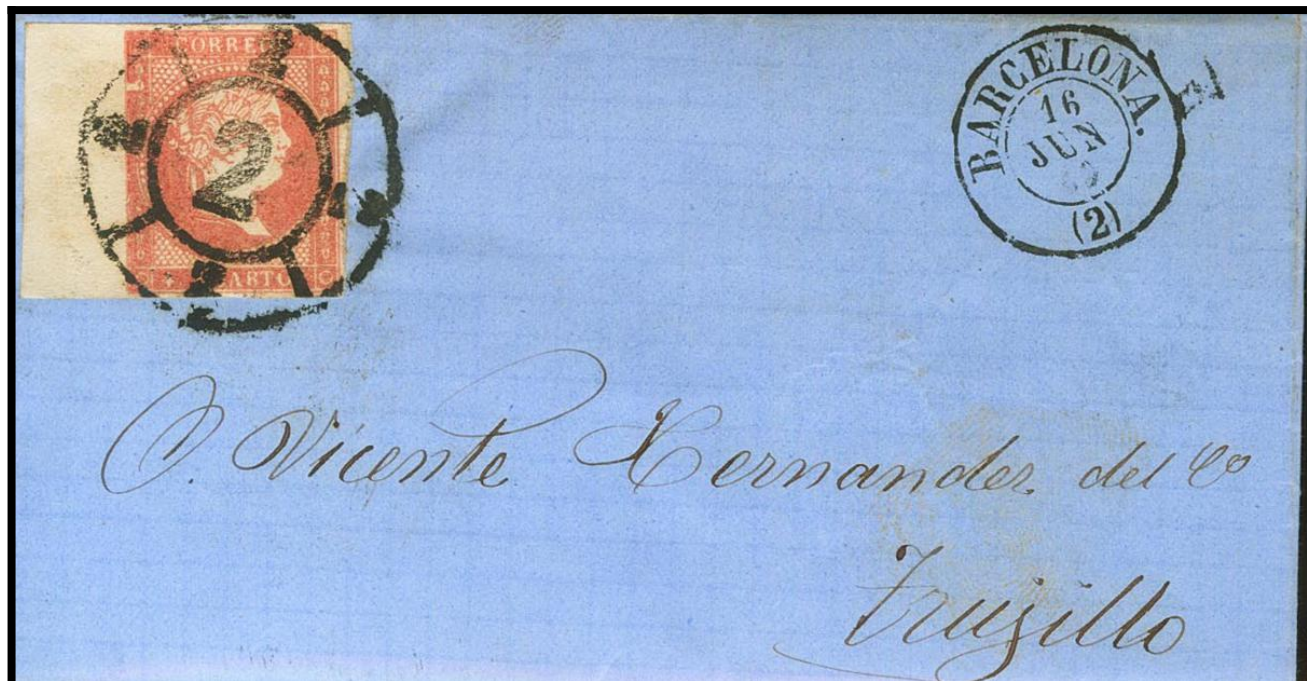 CORREOS
2
CUARTOS
BARCELONA.
16
JUN
(2)
D. Vicente Hernandez del Co
Trujillo